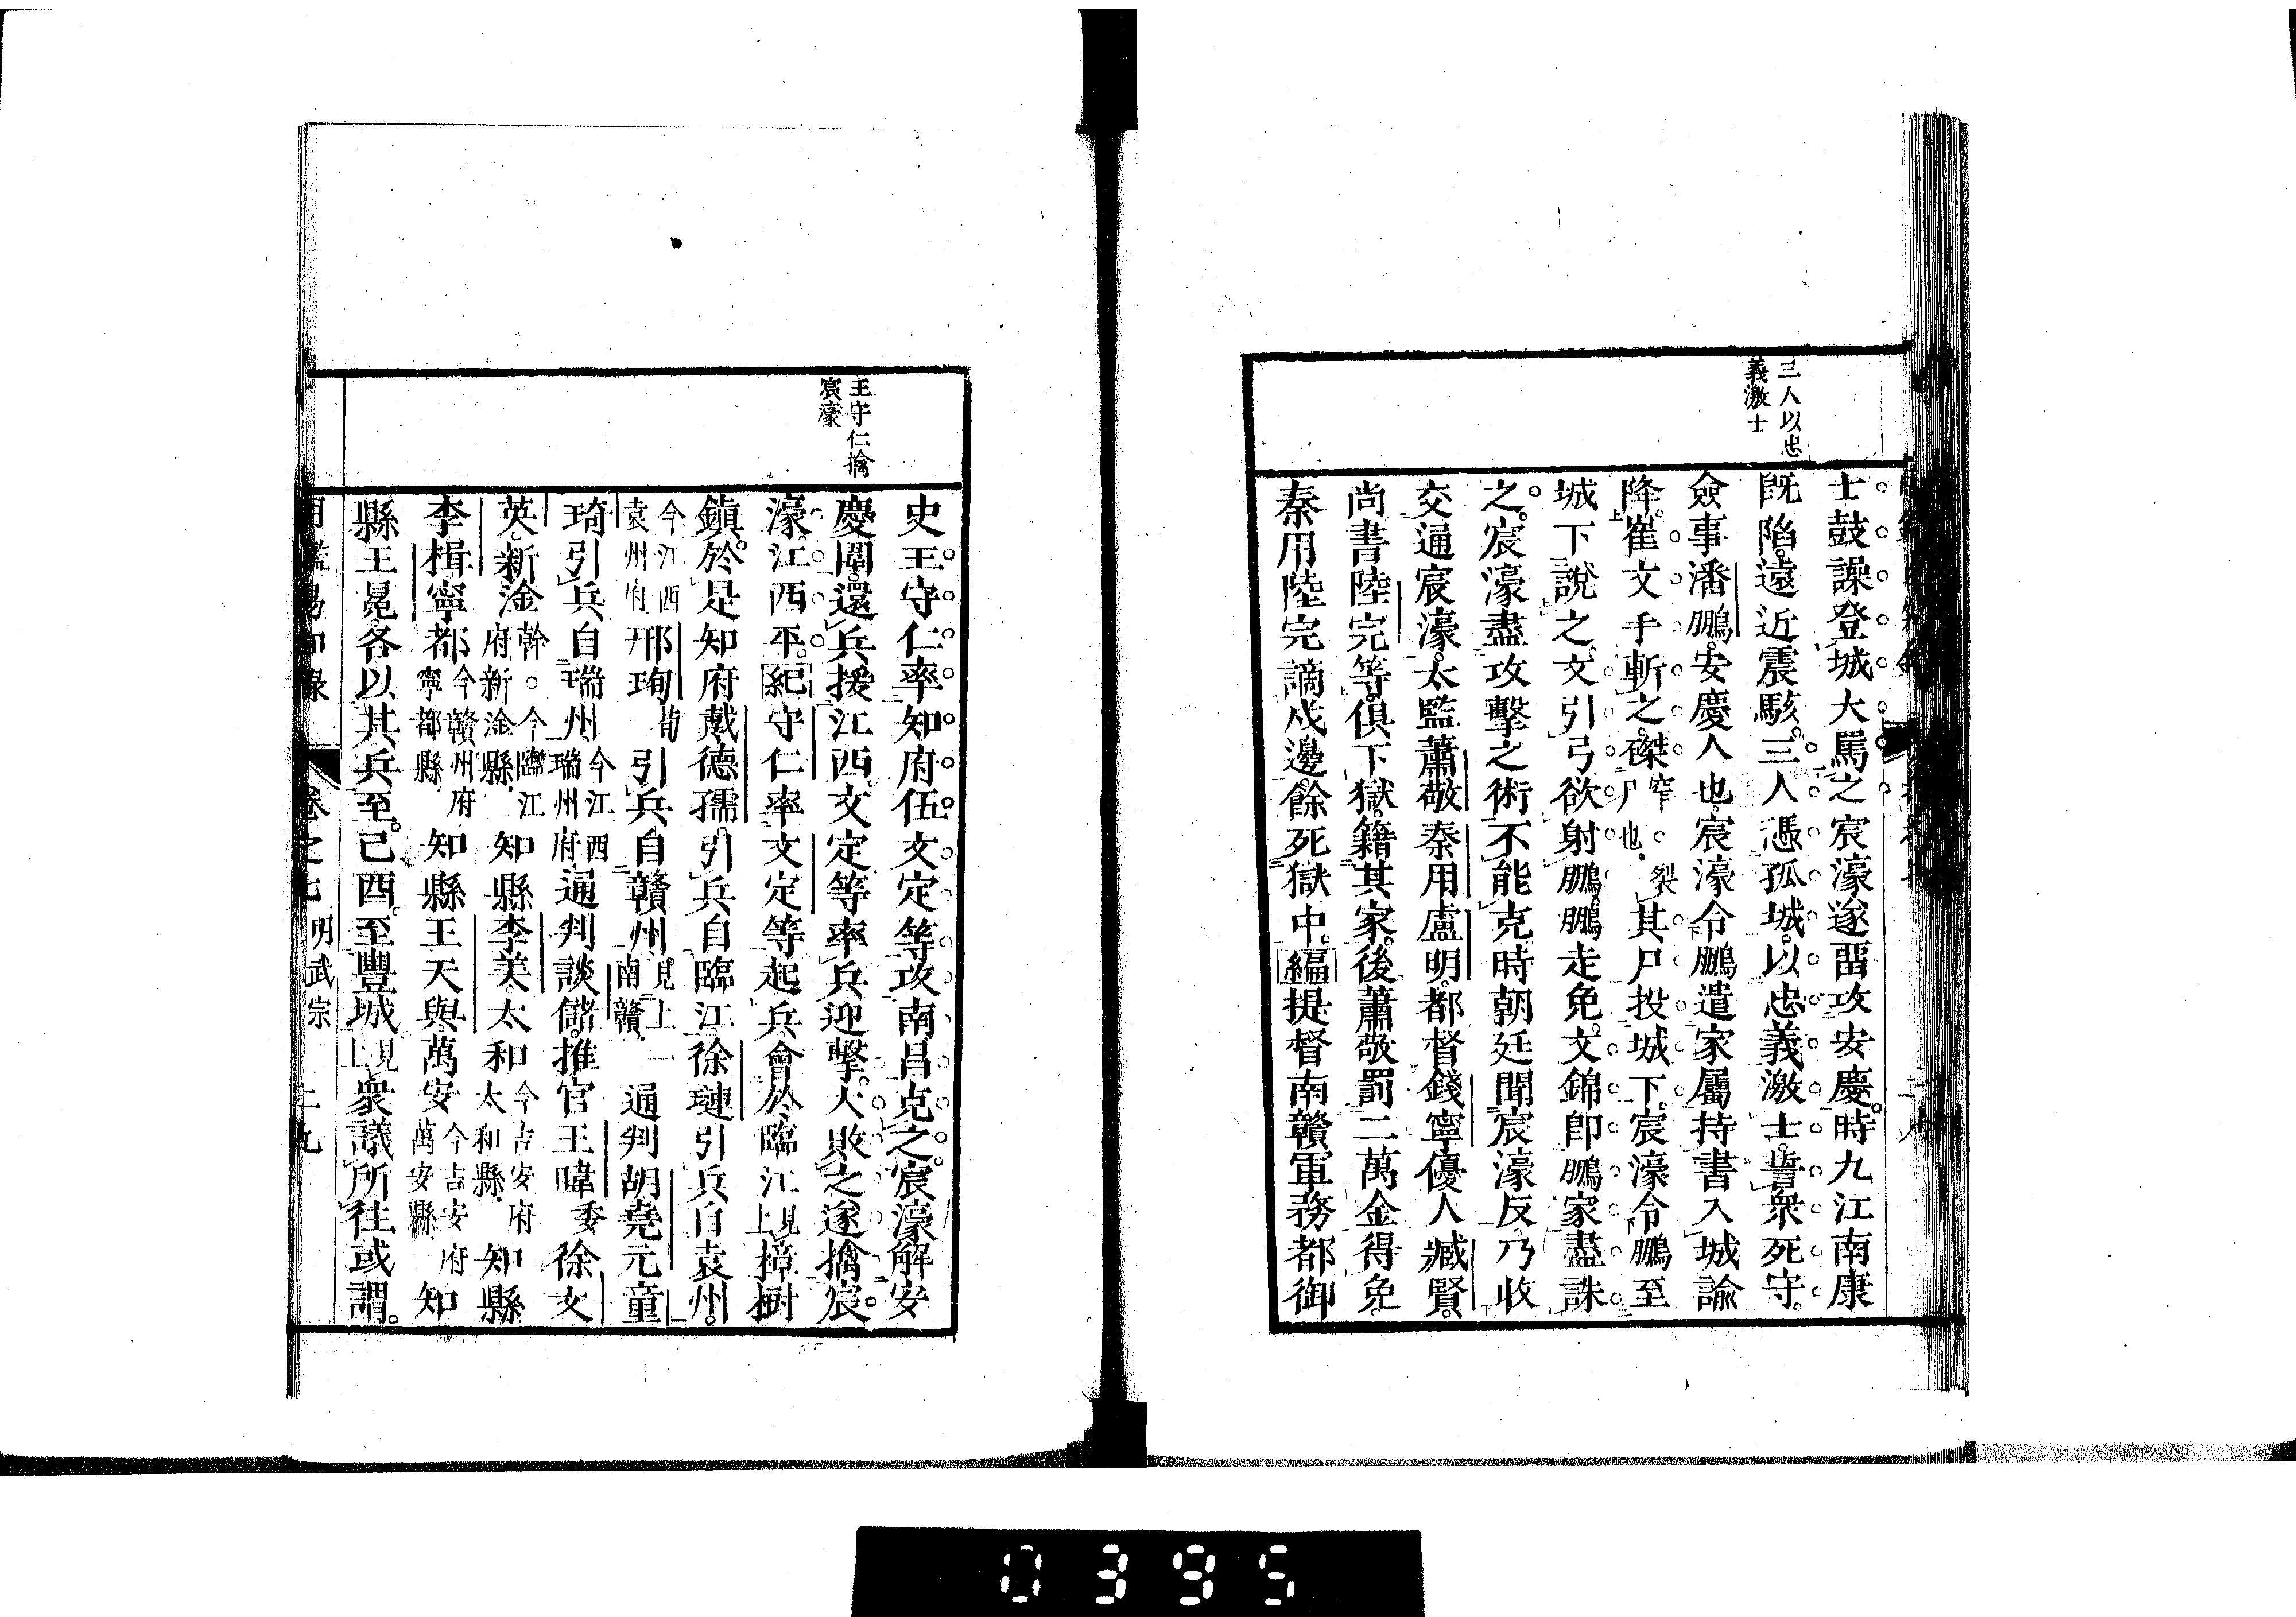 三人以忠
義激士
士鼓譟登城大罵之宸濠遂畱攻安慶時九江南康
既陷遠近震駭三人憑孤城以忠義激士誓衆死守
僉事潘鵬安慶人也宸濠令鵬遣家屬持書入城諭
降崔文手斬之磔窄。裂尸也其尸投城下宸濠令鵬至
城下說之文引弓欲射鵬鵬走免文錦即鵬家盡誅
之宸濠盡攻擊之術不能克時朝廷聞宸濠反乃收
交通宸濠太監蕭敬秦用盧明都督錢寧優人臧賢
尚書陸完等俱下獄籍其家後蕭敬罰二萬金得免
秦用陸完謫戍邊餘死獄中編提督南贛軍務都御
王守仁擒
宸濠
史王守仁率知府伍文定等攻南昌克之宸濠解安
慶圍還兵援江西文定等率兵迎擊大敗之遂擒宸
濠江西平紀守仁率文定等起兵會於臨江見上樟樹
鎮於是知府戴德孺引兵自臨江徐璉引兵自袁州
今江西袁州府邢珣荀引兵自贛州見上一南贛通判胡堯元童
琦引兵自瑞州今江西瑞州府通判談儲推官王暐委徐文
英新淦幹。今臨江府新淦縣知縣李美太和今吉安府太和縣知縣
李楫寧都今贛州府寧都縣知縣王天與萬安今吉安府萬安縣知
縣王冕各以其兵至己酉至豐城見上衆議所往或謂
明鑑易知錄 卷之七 明武宗 二九